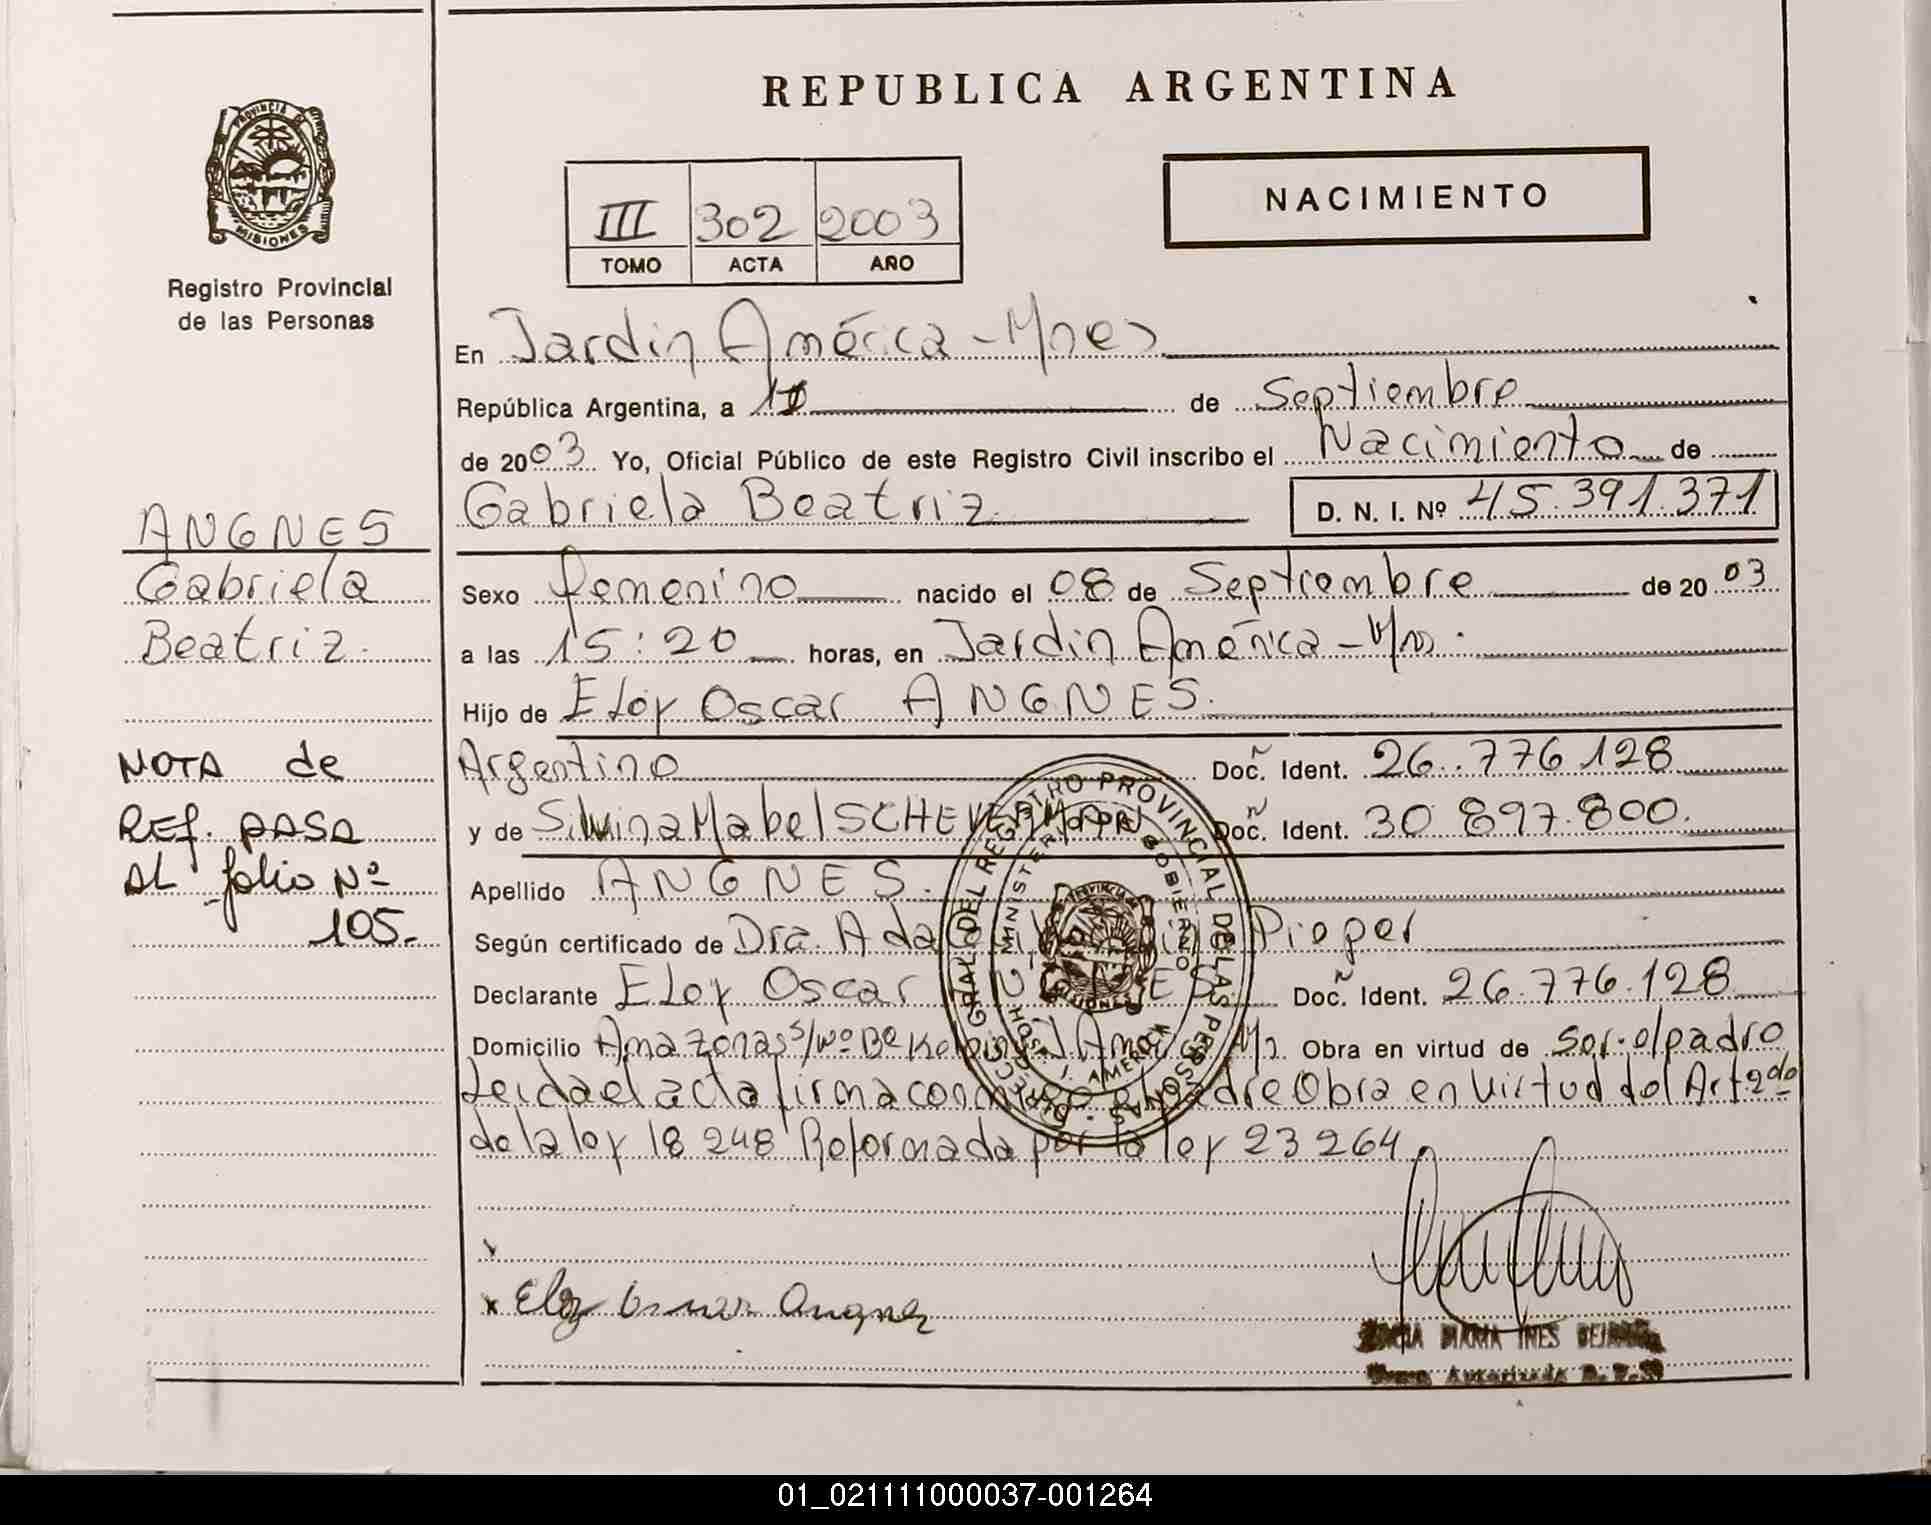 REPUBLICA ARGENTINA
PROVINCIA DE
MISIONES
Registro Provincial
de las Personas
NACIMIENTO
III 302 2003
TOMO ACTA AÑO
En Jardin América - Mnes
República Argentina, a de Septiembre
de 2003 Yo, Oficial Público de este Registro Civil inscribo el Nacimiento de
Gabriela Beatriz D. N. I. Nº 45.391.371
ANGNES
Gabriela
Beatriz.
Sexo femenino nacido el 08 de Septiembre de 2003
a las 15:20 horas, en Jardin América - Mns.
Hijo de Eloy Oscar ANGNES.
Argentino Doc. Ident. 26.776.128
y de Silvina Mabel Doc. Ident. 30.897.800.
Apellido ANGNES.
NOTA de
REF. PASA
AL folio Nº
105.
Según certificado de Dra. Ada Pieper
Declarante Eloy Oscar Doc. Ident. 26.776.128
Domicilio Amazonas s/nº Bº Obra en virtud de ser el padre
Leida el acta firma padre Obra en virtud del Art 2do
de la ley 18 248 Reformada por la ley 23 264.
DIRECC. GRAL. DEL REGISTRO PROVINCIAL DE LAS PERSONAS
MINISTERIO DE GOBIERNO
PROVINCIA
MISIONES
J. AMERICA
x Eloy Oscar Angnes
MARIA INES
Autorizada
01_021111000037-001264